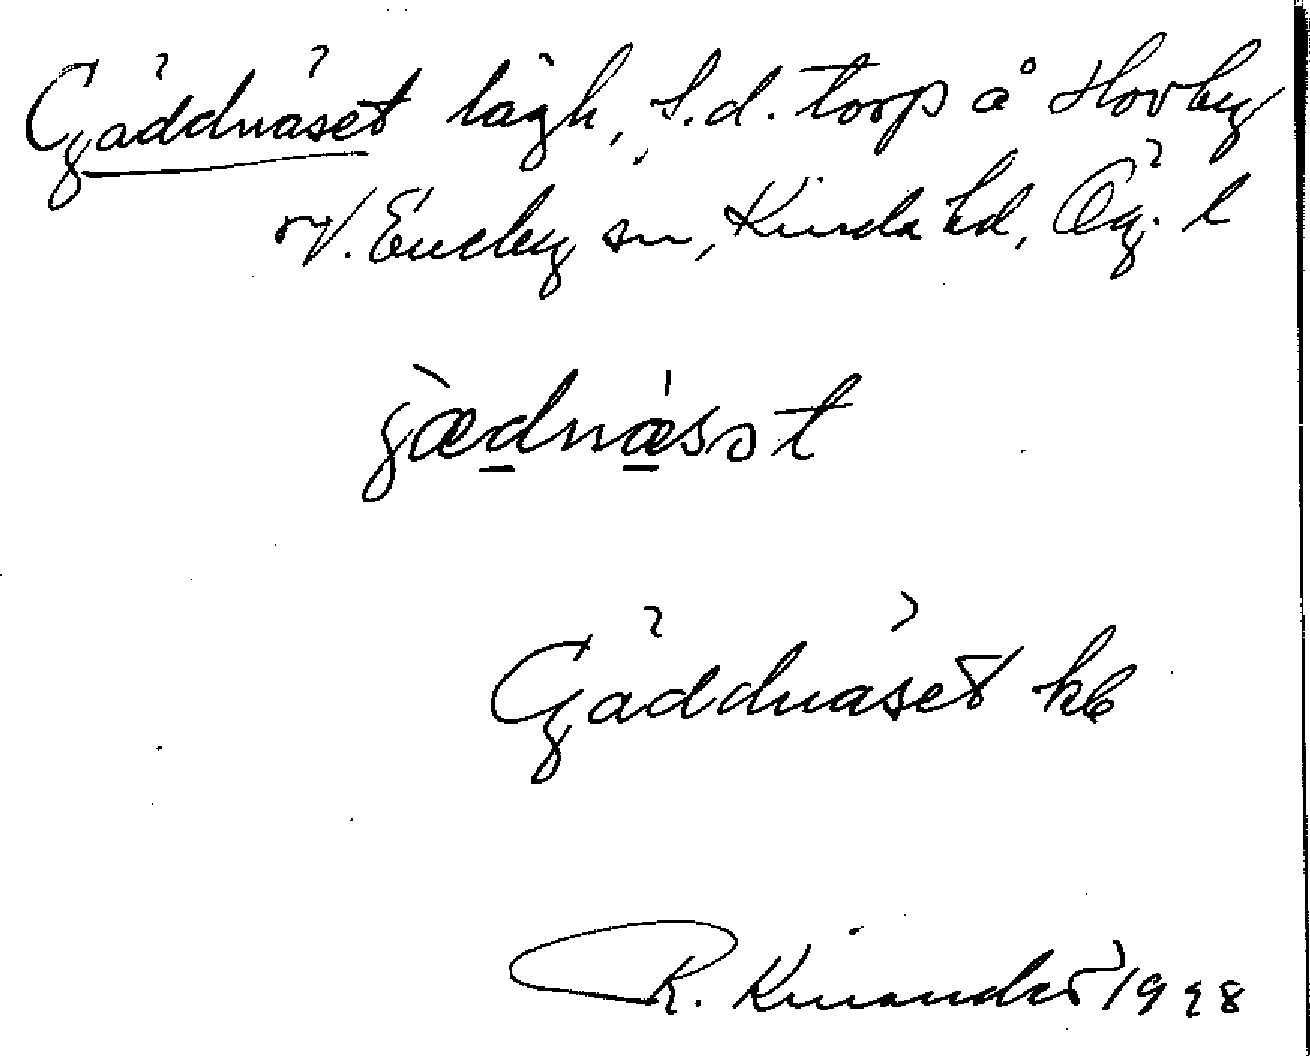 Gäddnäset lägh, f.d. torp å Hovby
V. Eneby sn, Kinda hd, Ög. l
gæ̀dnǽsət
Gäddnäset kb
R. Kinander 1928